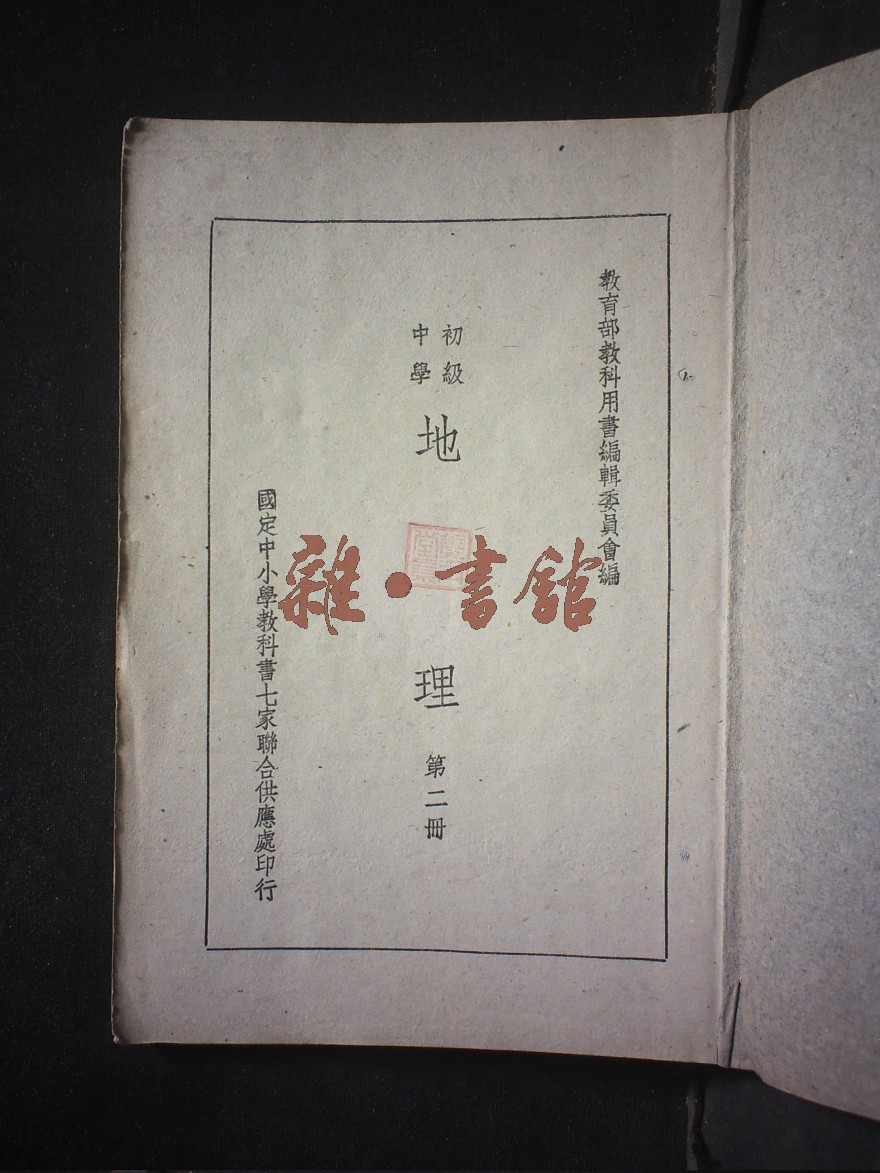 教育部教科用書編輯委員會編
初級
中學
地理
第二冊
國定中小學教科書七家聯合供應處印行
雜·書館